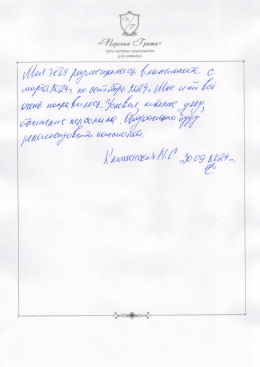 «Царская Грива»
Сеть частных пансионатов
для пожилых
Моя тётя размещалась в пансионате с
марта 2024г по сентябрь 2024г. Мне и ей всё
очень понравилось. Условия, питание, уход,
отношение персонала. Однозначно буду
рекомендовать пансионат.
30.09.2024г.